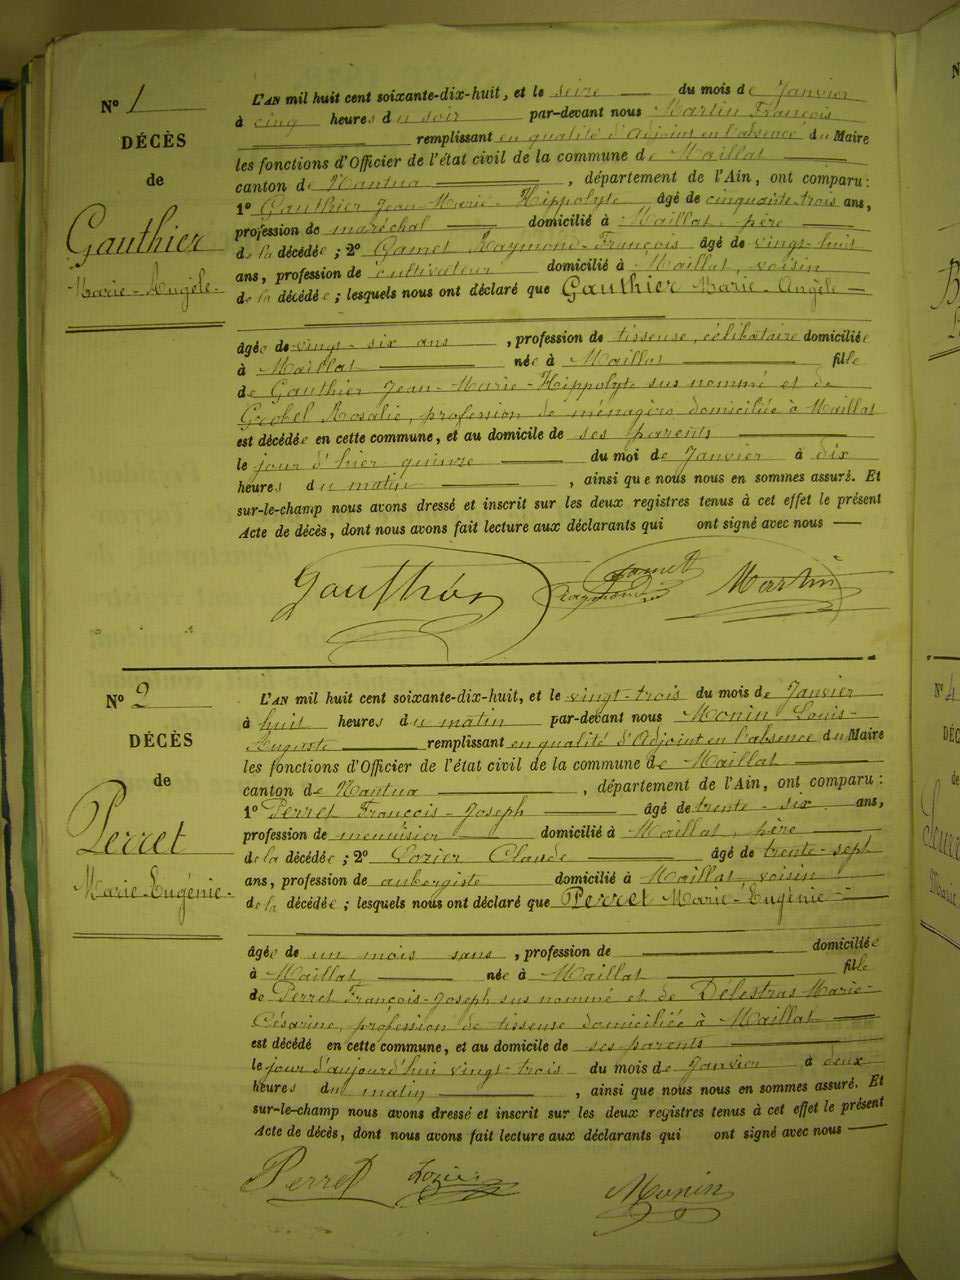 N° 1
DÉCÈS
de
Gauthier
Marie-Angèle-
L'AN mil huit cent soixante-dix-huit, et le seize du mois de Janvier
à cinq heures du soir par-devant nous Martin François
remplissant en qualité d'Adjoint en l'absence du Maire
les fonctions d'Officier de l'état civil de la commune de Maillat
canton de Nantua, département de l'Ain, ont comparu :
1° Gauthier Jean-Marie-Hippolyte âgé de cinquante-trois ans,
profession de maréchal domicilié à Maillat, père
de la décédée ; 2° Gamet Raymond-François âgé de vingt-huit
ans, profession de cultivateur domicilié à Maillat, voisin
de la décédée ; lesquels nous ont déclaré que Gauthier Marie-Angèle
âgée de vingt-six ans, profession de tisseuse, célibataire domiciliée
à Maillat née à Maillat fille
de Gauthier Jean-Marie-Hippolyte sus nommé et de
Grobel Rosalie, profession de ménagère domiciliée à Maillat
est décédée en cette commune, et au domicile de ses parents
le jour d'hier quinze du moi de Janvier à dix
heures du matin, ainsi que nous nous en sommes assuré. Et
sur-le-champ nous avons dressé et inscrit sur les deux registres tenus à cet effet le présent
Acte de décès, dont nous avons fait lecture aux déclarants qui ont signé avec nous
Gauthier Gamet Martin
Raymond
N° 2
DÉCÈS
de
Perret
Marie-Eugénie-
L'AN mil huit cent soixante-dix-huit, et le vingt-trois du mois de Janvier
à huit heures du matin par-devant nous Monin Louis-
Auguste remplissant en qualité d'Adjoint en l'absence du Maire
les fonctions d'Officier de l'état civil de la commune de Maillat
canton de Nantua, département de l'Ain, ont comparu :
1° Perret François-Joseph âgé de trente-six ans,
profession de menuisier domicilié à Maillat, père
de la décédée ; 2° Lozier Claude âgé de trente-sept
ans, profession de aubergiste domicilié à Maillat, voisin
de la décédée ; lesquels nous ont déclaré que Perret Marie-Eugénie
âgée de un mois sans, profession de domiciliée
à Maillat, née à Maillat fille
de Perret François-Joseph sus nommé et de Délestras Marie-
Césarine, profession de tisseuse domiciliée à Maillat
est décédé en cette commune, et au domicile de ses parents
le jour d'aujourd'hui vingt-trois du mois de Janvier à deux
heures du matin, ainsi que nous nous en sommes assuré. Et
sur-le-champ nous avons dressé et inscrit sur les deux registres tenus à cet effet le présent
Acte de décès, dont nous avons fait lecture aux déclarants qui ont signé avec nous
Perret Lozier Monin